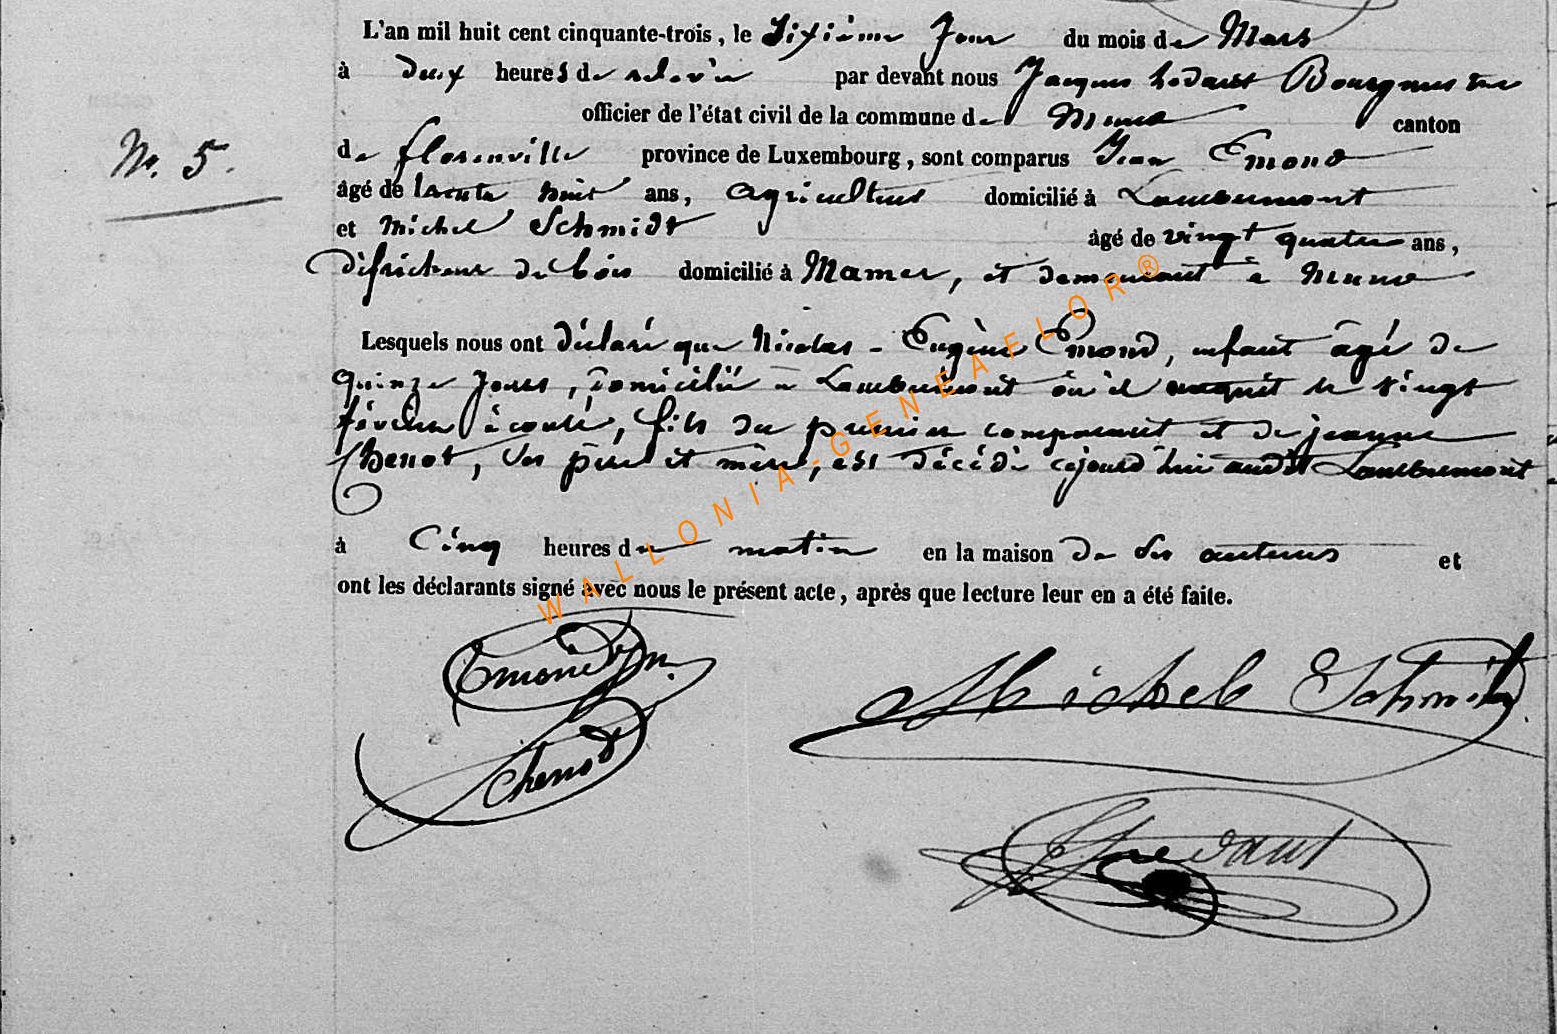 L'an mil huit cent cinquante-trois, le Sixième Jour du mois de Mars
à deux heures de relevée par devant nous Jacques Bourgmestre
officier de l'état civil de la commune de Muno canton
No. 5.
de florenville province de Luxembourg, sont comparus Jean Emond
âgé de trente huit ans, agriculteur domicilié à Lambermont
et Michel Schmidt âgé de vingt quatre ans,
défricheur de bois domicilié à Mamer, et demeurant à Muno
Lesquels nous ont déclaré que Nicolas - Eugène Emond, enfant âgé de
quinze jours, domicilié à Lambermont où il naquit le vingt
février écoulé, fils du premier comparant et de jeanne
Chenot, ses père et mère, est décédé cejourd'hui audit Lambermont
à Cinq heures du matin en la maison de ses auteurs et
ont les déclarants signé avec nous le présent acte, après que lecture leur en a été faite.
WALLONIA-GENEAELOR®
Emond
Chenot
Michel Schmit